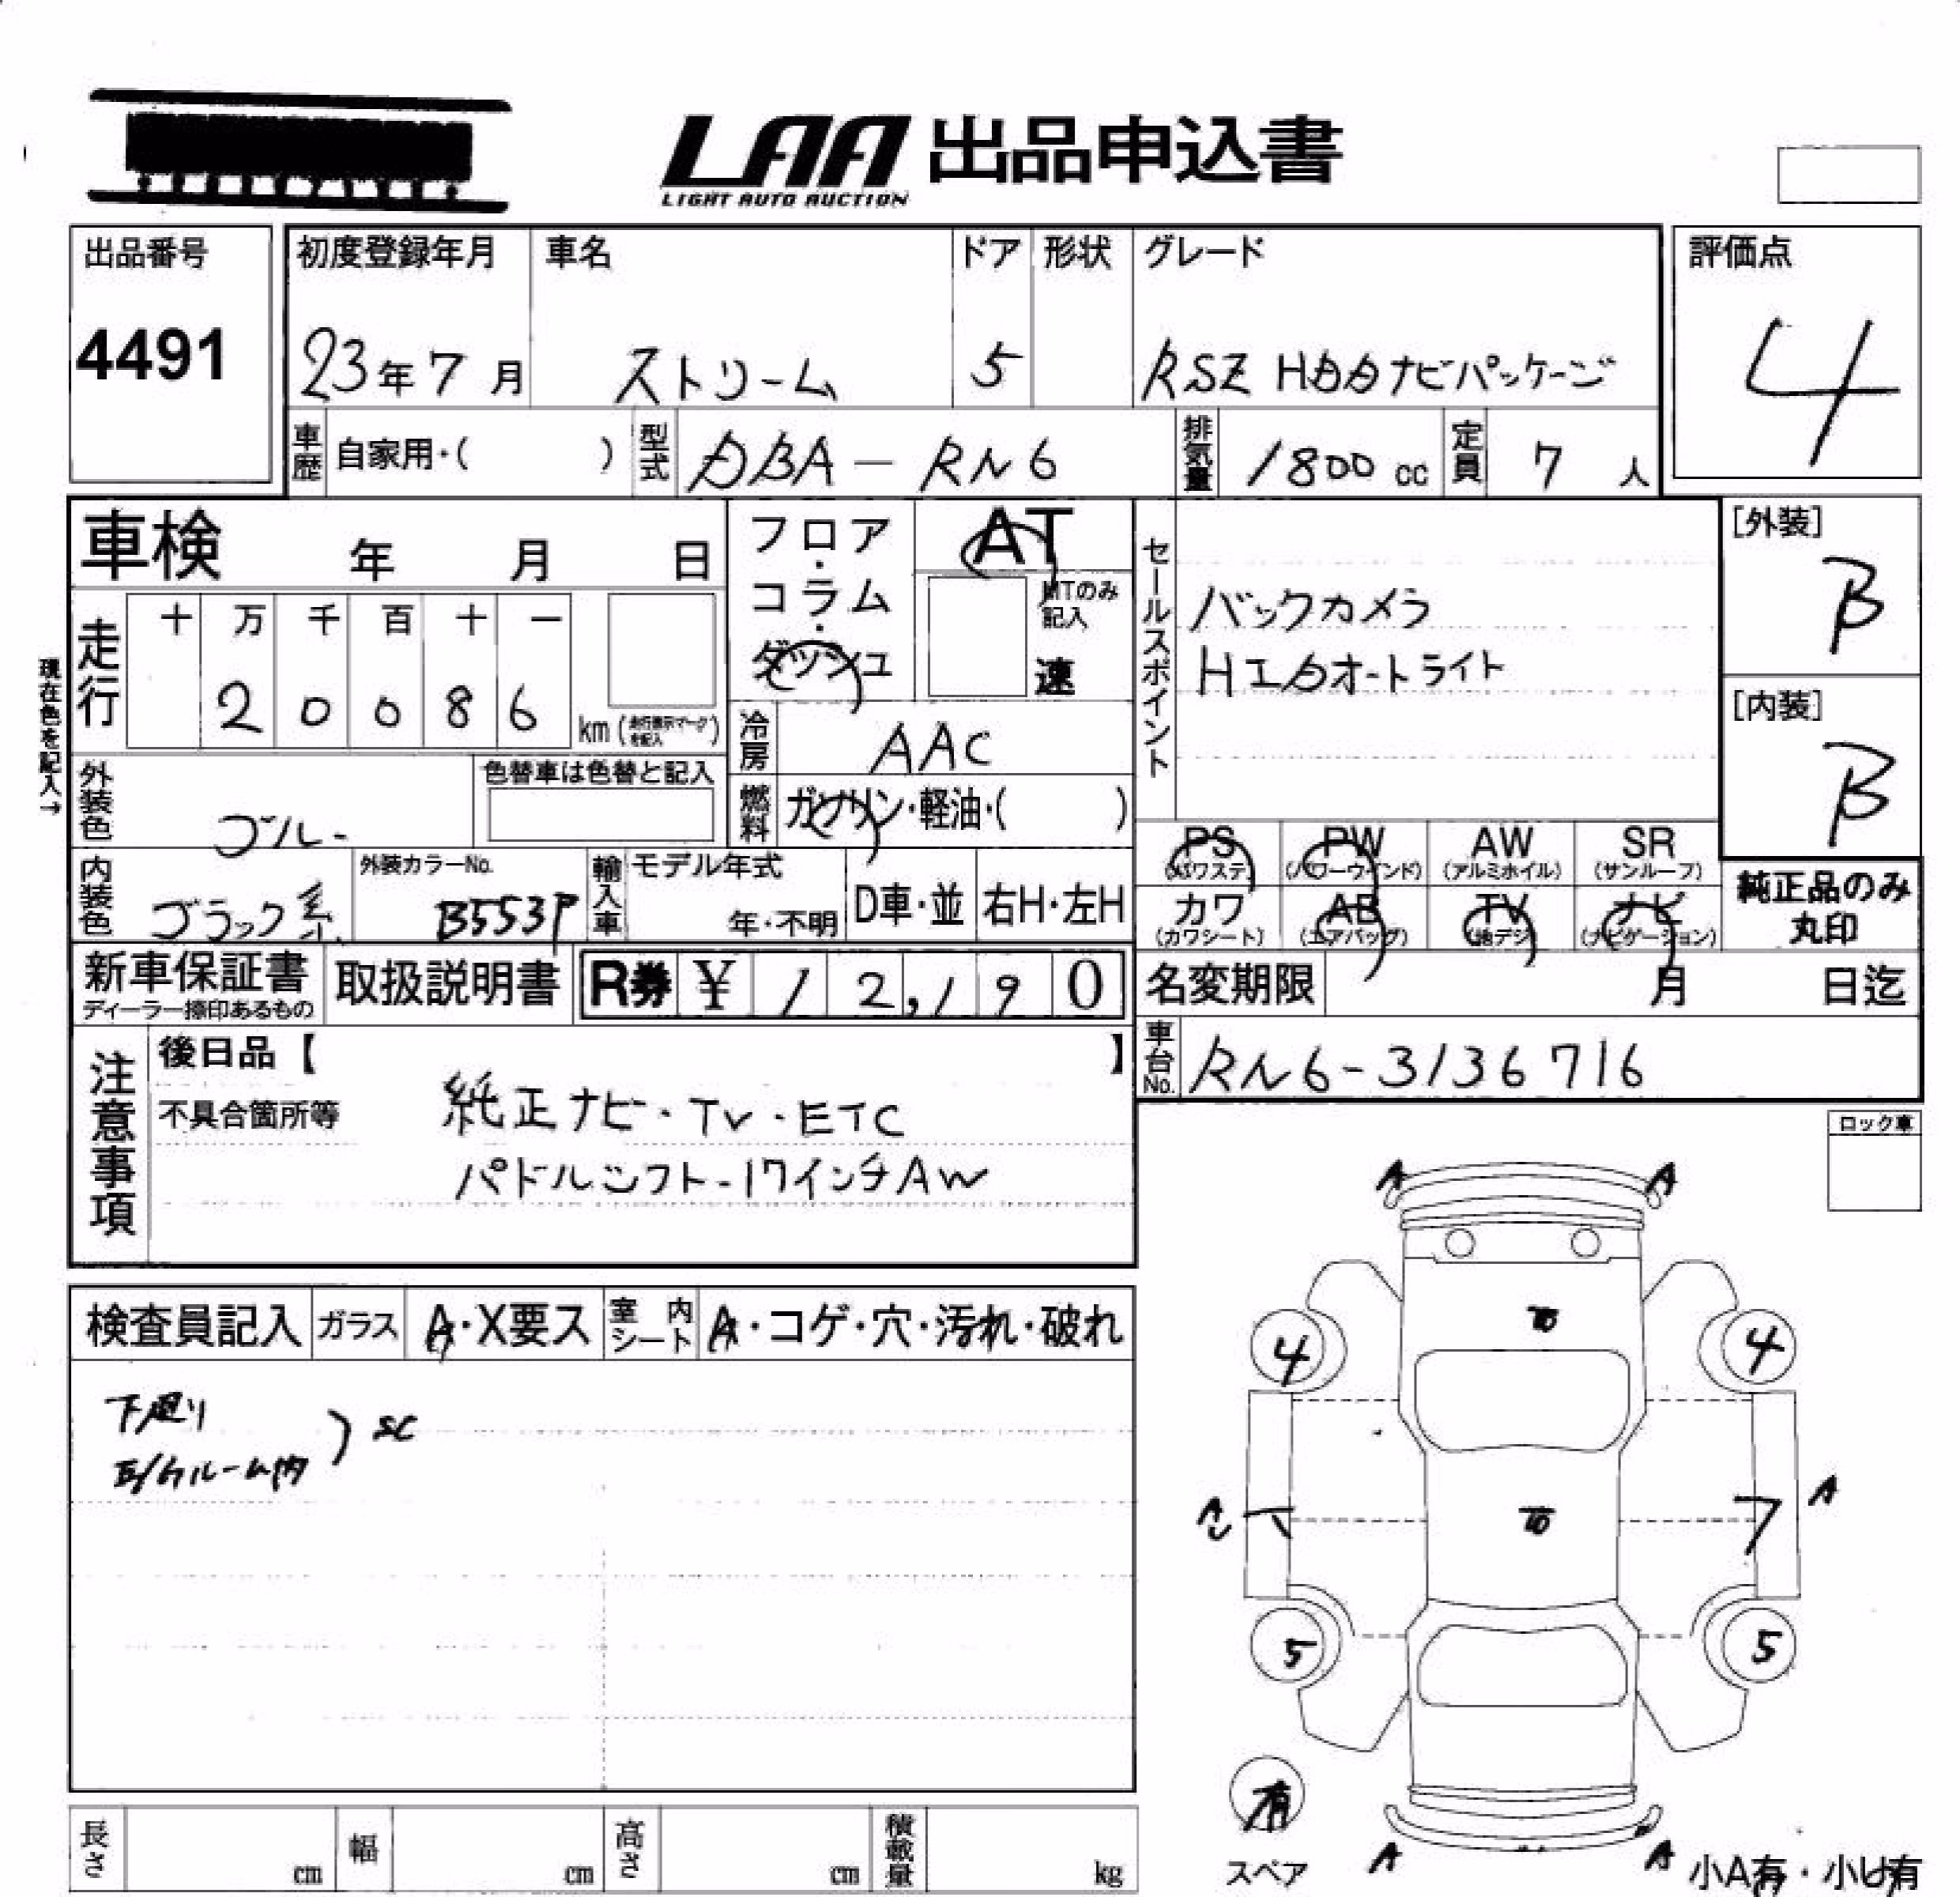 LAA 出品申込書
LIGHT AUTO AUCTION
出品番号
4491
初度登録年月
23年7月
車名
ストリーム
ドア
5
形状
グレード
RSZ HDDナビパッケージ
評価点
4
車歴 自家用・( )
型式 DBA-RN6
排気量 1800cc
定員 7人
車検 年 月 日
走行
十 万 千 百 十 一
2 0 0 8 6
km (走行表示マークを記入)
現在色を記入→
フロア・コラム・ダッシュ
AT
MTのみ記入
速
冷房 AAC
燃料 ガソリン・軽油・( )
セールスポイント
バックカメラ
HIDオートライト
[外装]
B
[内装]
B
外装色 ブルー
色替車は色替と記入
内装色 ブラック系
外装カラーNo.
B553P
輸入車
モデル年式
年・不明
D車・並
右H・左H
PS (パワステ)
PW (パワーウインド)
AW (アルミホイル)
SR (サンルーフ)
カワ (カワシート)
AB (エアバッグ)
TV (地デジ)
ナビ (ナビゲーション)
純正品のみ
丸印
新車保証書
ディーラー捺印あるもの
取扱説明書
R券 ¥12,190
名変期限 月 日迄
車台No. RN6-3136716
注意事項
後日品【 】
不具合箇所等
純正ナビ・TV・ETC
パドルシフト・17インチAW
ロック車
検査員記入
ガラス A・X要ス
室内シート A・コゲ・穴・汚れ・破れ
下廻り
E/Gルーム内 ) SC
A A
4 4
A A
5 5
有
スペア
A A
小A有・小U有
長さ cm
幅 cm
高さ cm
積載量 kg